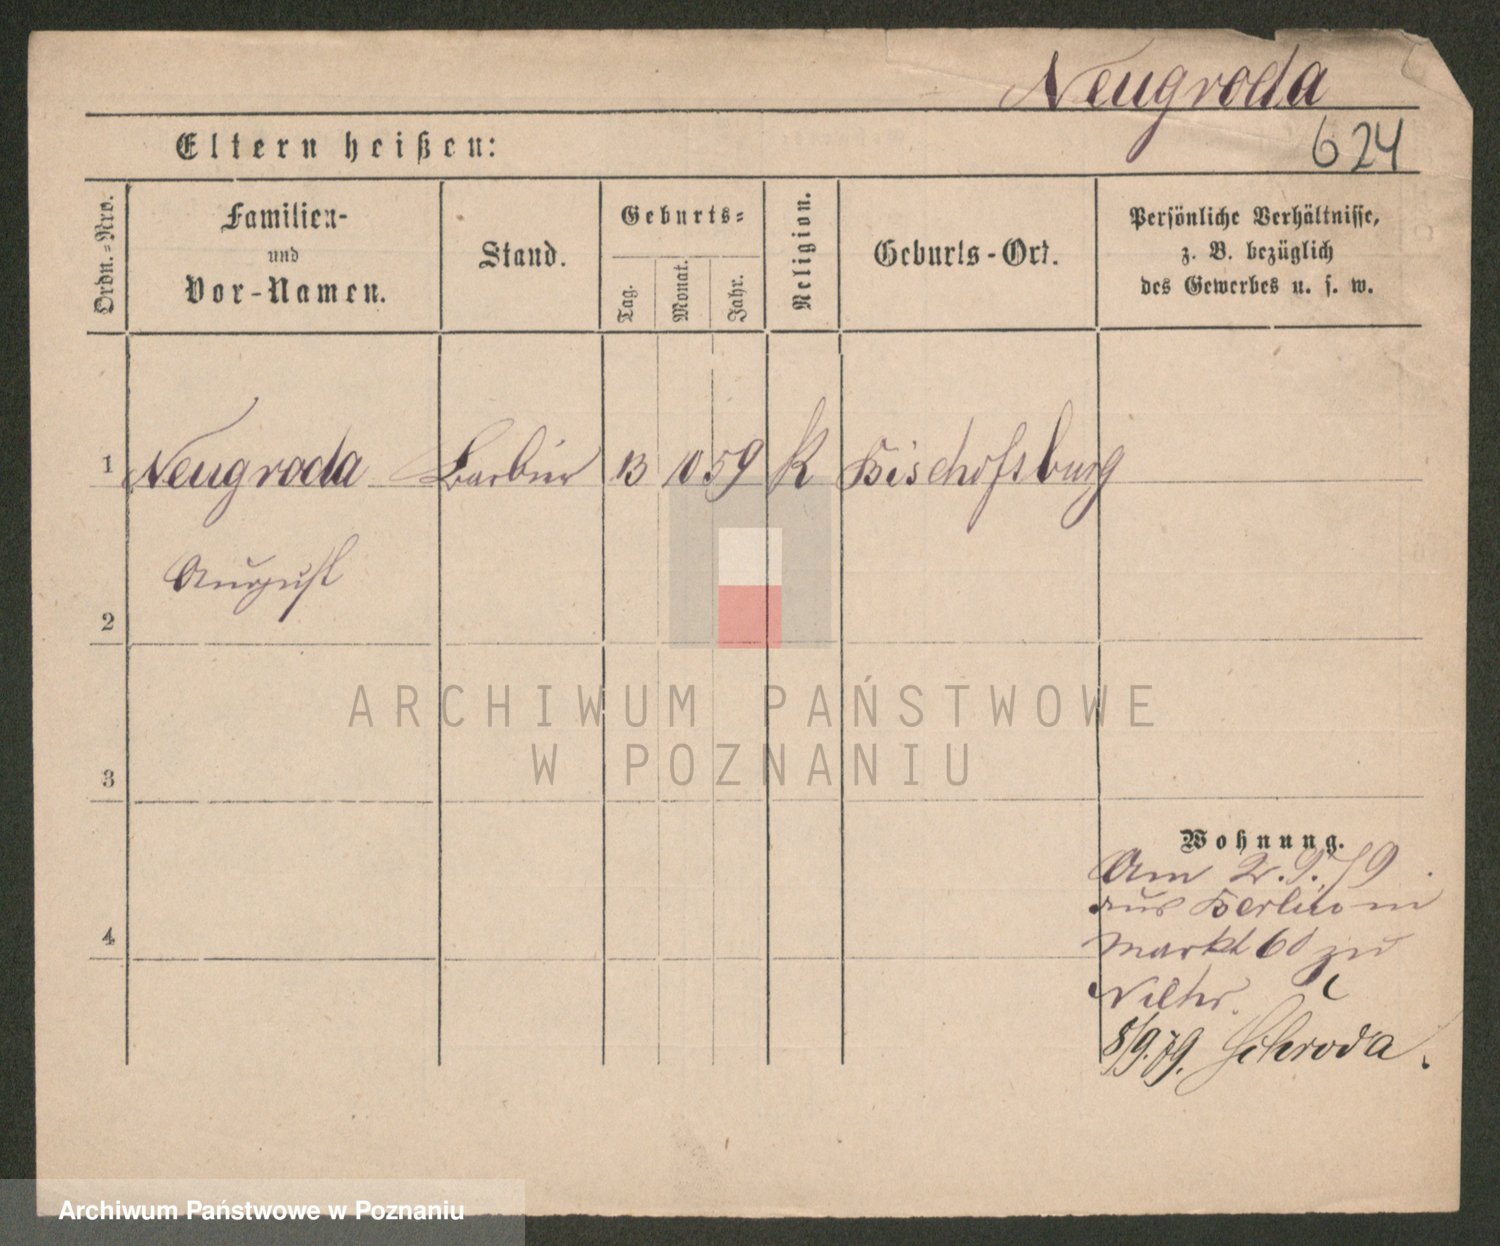 Neugroda
624
Eltern heißen:
Ordn.-Nro.
Familien-
und
Vor-Namen.
Stand.
Geburts-
Tag.
Monat.
Jahr.
Religion.
Geburts-Ort.
Persönliche Verhältnisse,
z. B. bezüglich
des Gewerbes u. s. w.
1 Neugroda Barbier 13 10 59 K Bischofsburg
August
2
ARCHIWUM PAŃSTWOWE
W POZNANIU
3
Wohnung.
Am 2.9.79
aus Berlin in
Markt 60 zu
4
8/9.79. Schroda.
Archiwum Państwowe w Poznaniu